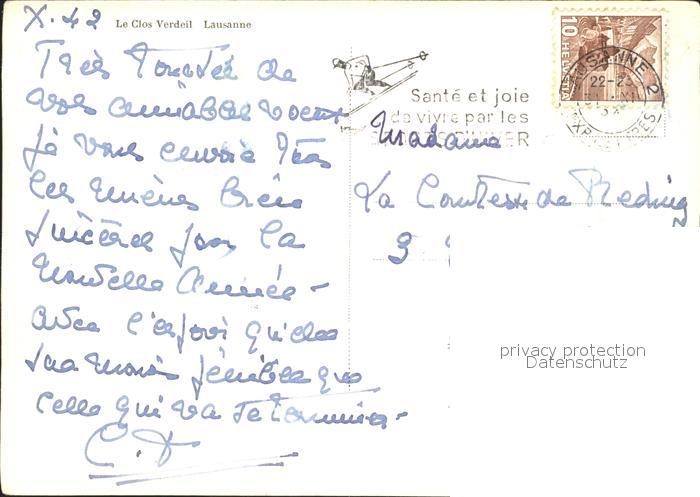 X. 42
Le Clos Verdeil Lausanne
Très Touchée de
vos aimables voeux
je vous envoie très
les miens bien
sincères pour la
Nouvelle Année -
avec l'espoir qu'elle
sera moins pénible que
celle qui va se terminer -
Santé et joie
de vivre par les
Madame
La Comtesse de Reding
10
HELVETIA
LAUSANNE 2
22-23
privacy protection
Datenschutz